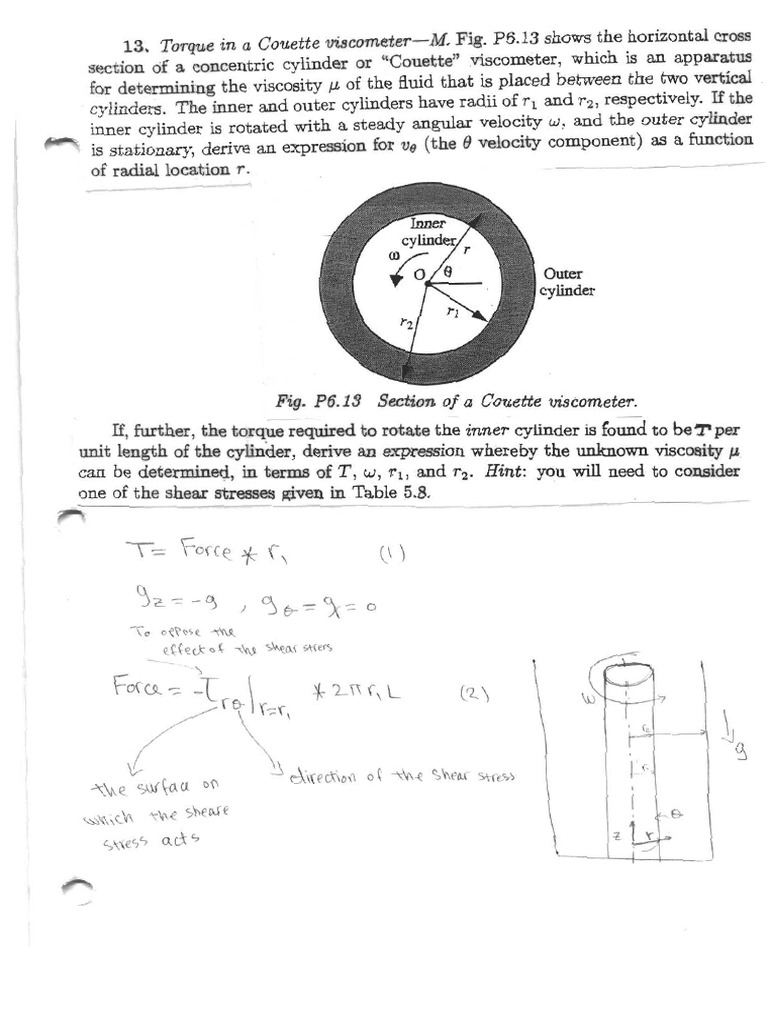 13. Torque in a Couette viscometer—M. Fig. P6.13 shows the horizontal cross
section of a concentric cylinder or "Couette" viscometer, which is an apparatus
for determining the viscosity μ of the fluid that is placed between the two vertical
cylinders. The inner and outer cylinders have radii of r₁ and r₂, respectively. If the
inner cylinder is rotated with a steady angular velocity ω, and the outer cylinder
is stationary, derive an expression for vθ (the θ velocity component) as a function
of radial location r.
Inner
cylinder
r
ω
O
θ
Outer
cylinder
r₁
r₂
Fig. P6.13 Section of a Couette viscometer.
If, further, the torque required to rotate the inner cylinder is found to be T per
unit length of the cylinder, derive an expression whereby the unknown viscosity μ
can be determined, in terms of T, ω, r₁, and r₂. Hint: you will need to consider
one of the shear stresses given in Table 5.8.
T = Force * r₁ (1)
g_z = -g , g_θ = g_r = 0
To oppose the
effect of the shear stress
Force = -τ_rθ|r=r₁ * 2πr₁L (2)
the surface on
which the sheare
stress acts
direction of the shear stress
ω
r₂
g
r₁
θ
z
r